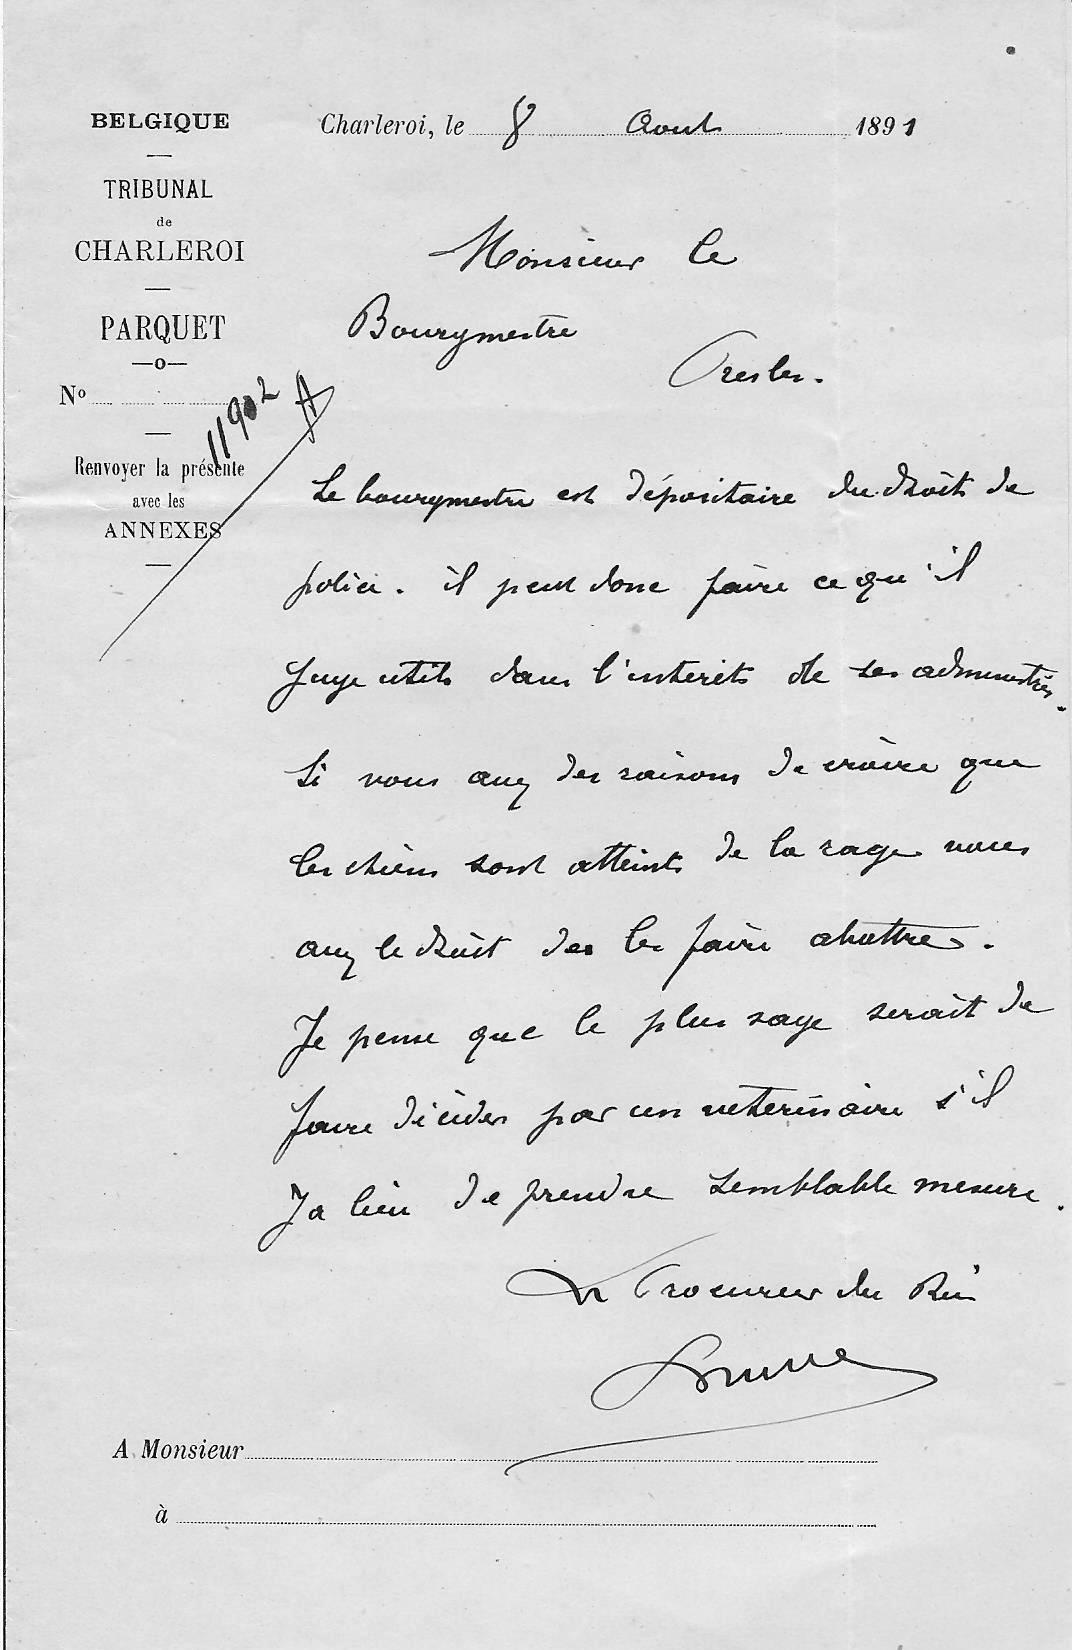 BELGIQUE
TRIBUNAL
de
CHARLEROI
PARQUET
No 11902 A
Renvoyer la présente
avec les
ANNEXES
Charleroi, le 8 Aout 1891
Monsieur le
Bourgmestre
Presles.
Le bourgmestre est dépositaire du droit de
police. il peut donc faire ce qu'il
juge utile dans l'interêts de ses administrés.
Si vous avez des raisons de croire que
les chiens sont atteints de la rage vous
avez le droit des les faire abattre.
Je pense que le plus sage serait de
faire décider par un veterinaire s'il
y a lieu de prendre semblable mesure.
Le Procureur du Roi
A Monsieur
à